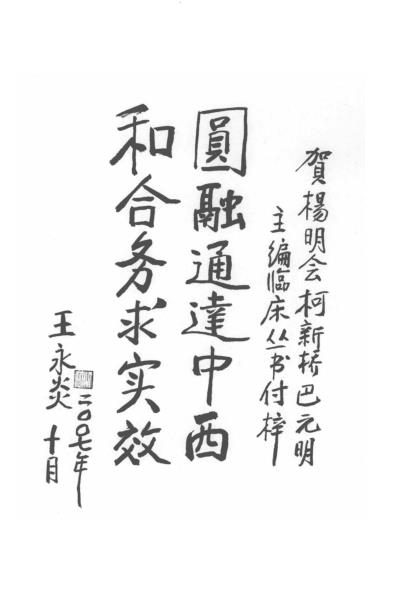 賀楊明会柯新桥巴元明
主编临床丛书付梓
圓融通達中西
和合务求实效
王永炎
二〇〇七年
十月